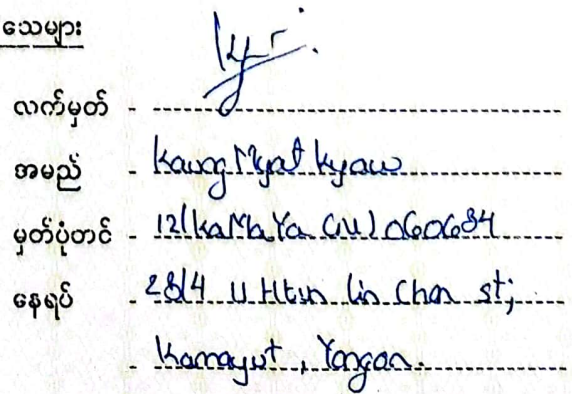 သေများ
လက်မှတ် -
အမည် - Kaung Myat Kyaw
မှတ်ပုံတင် - 12/KaMaYa (N) 060684
နေရပ် - 28/4 U Htun Lin Chan st;
- Kamayut, Yangon.